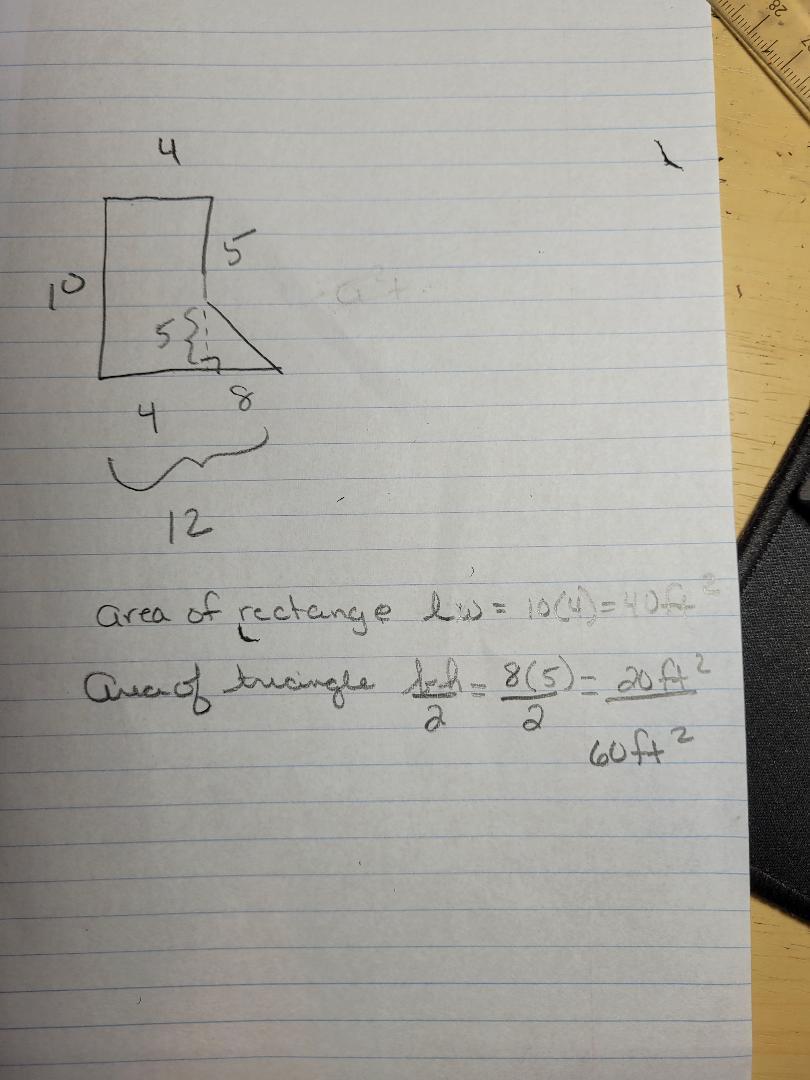 28
4
5
10
5
4
8
12
area of rectange lw = 10(4) = 40ft²
area of triangle b·h/2 = 8(5)/2 = 20ft²
60ft²